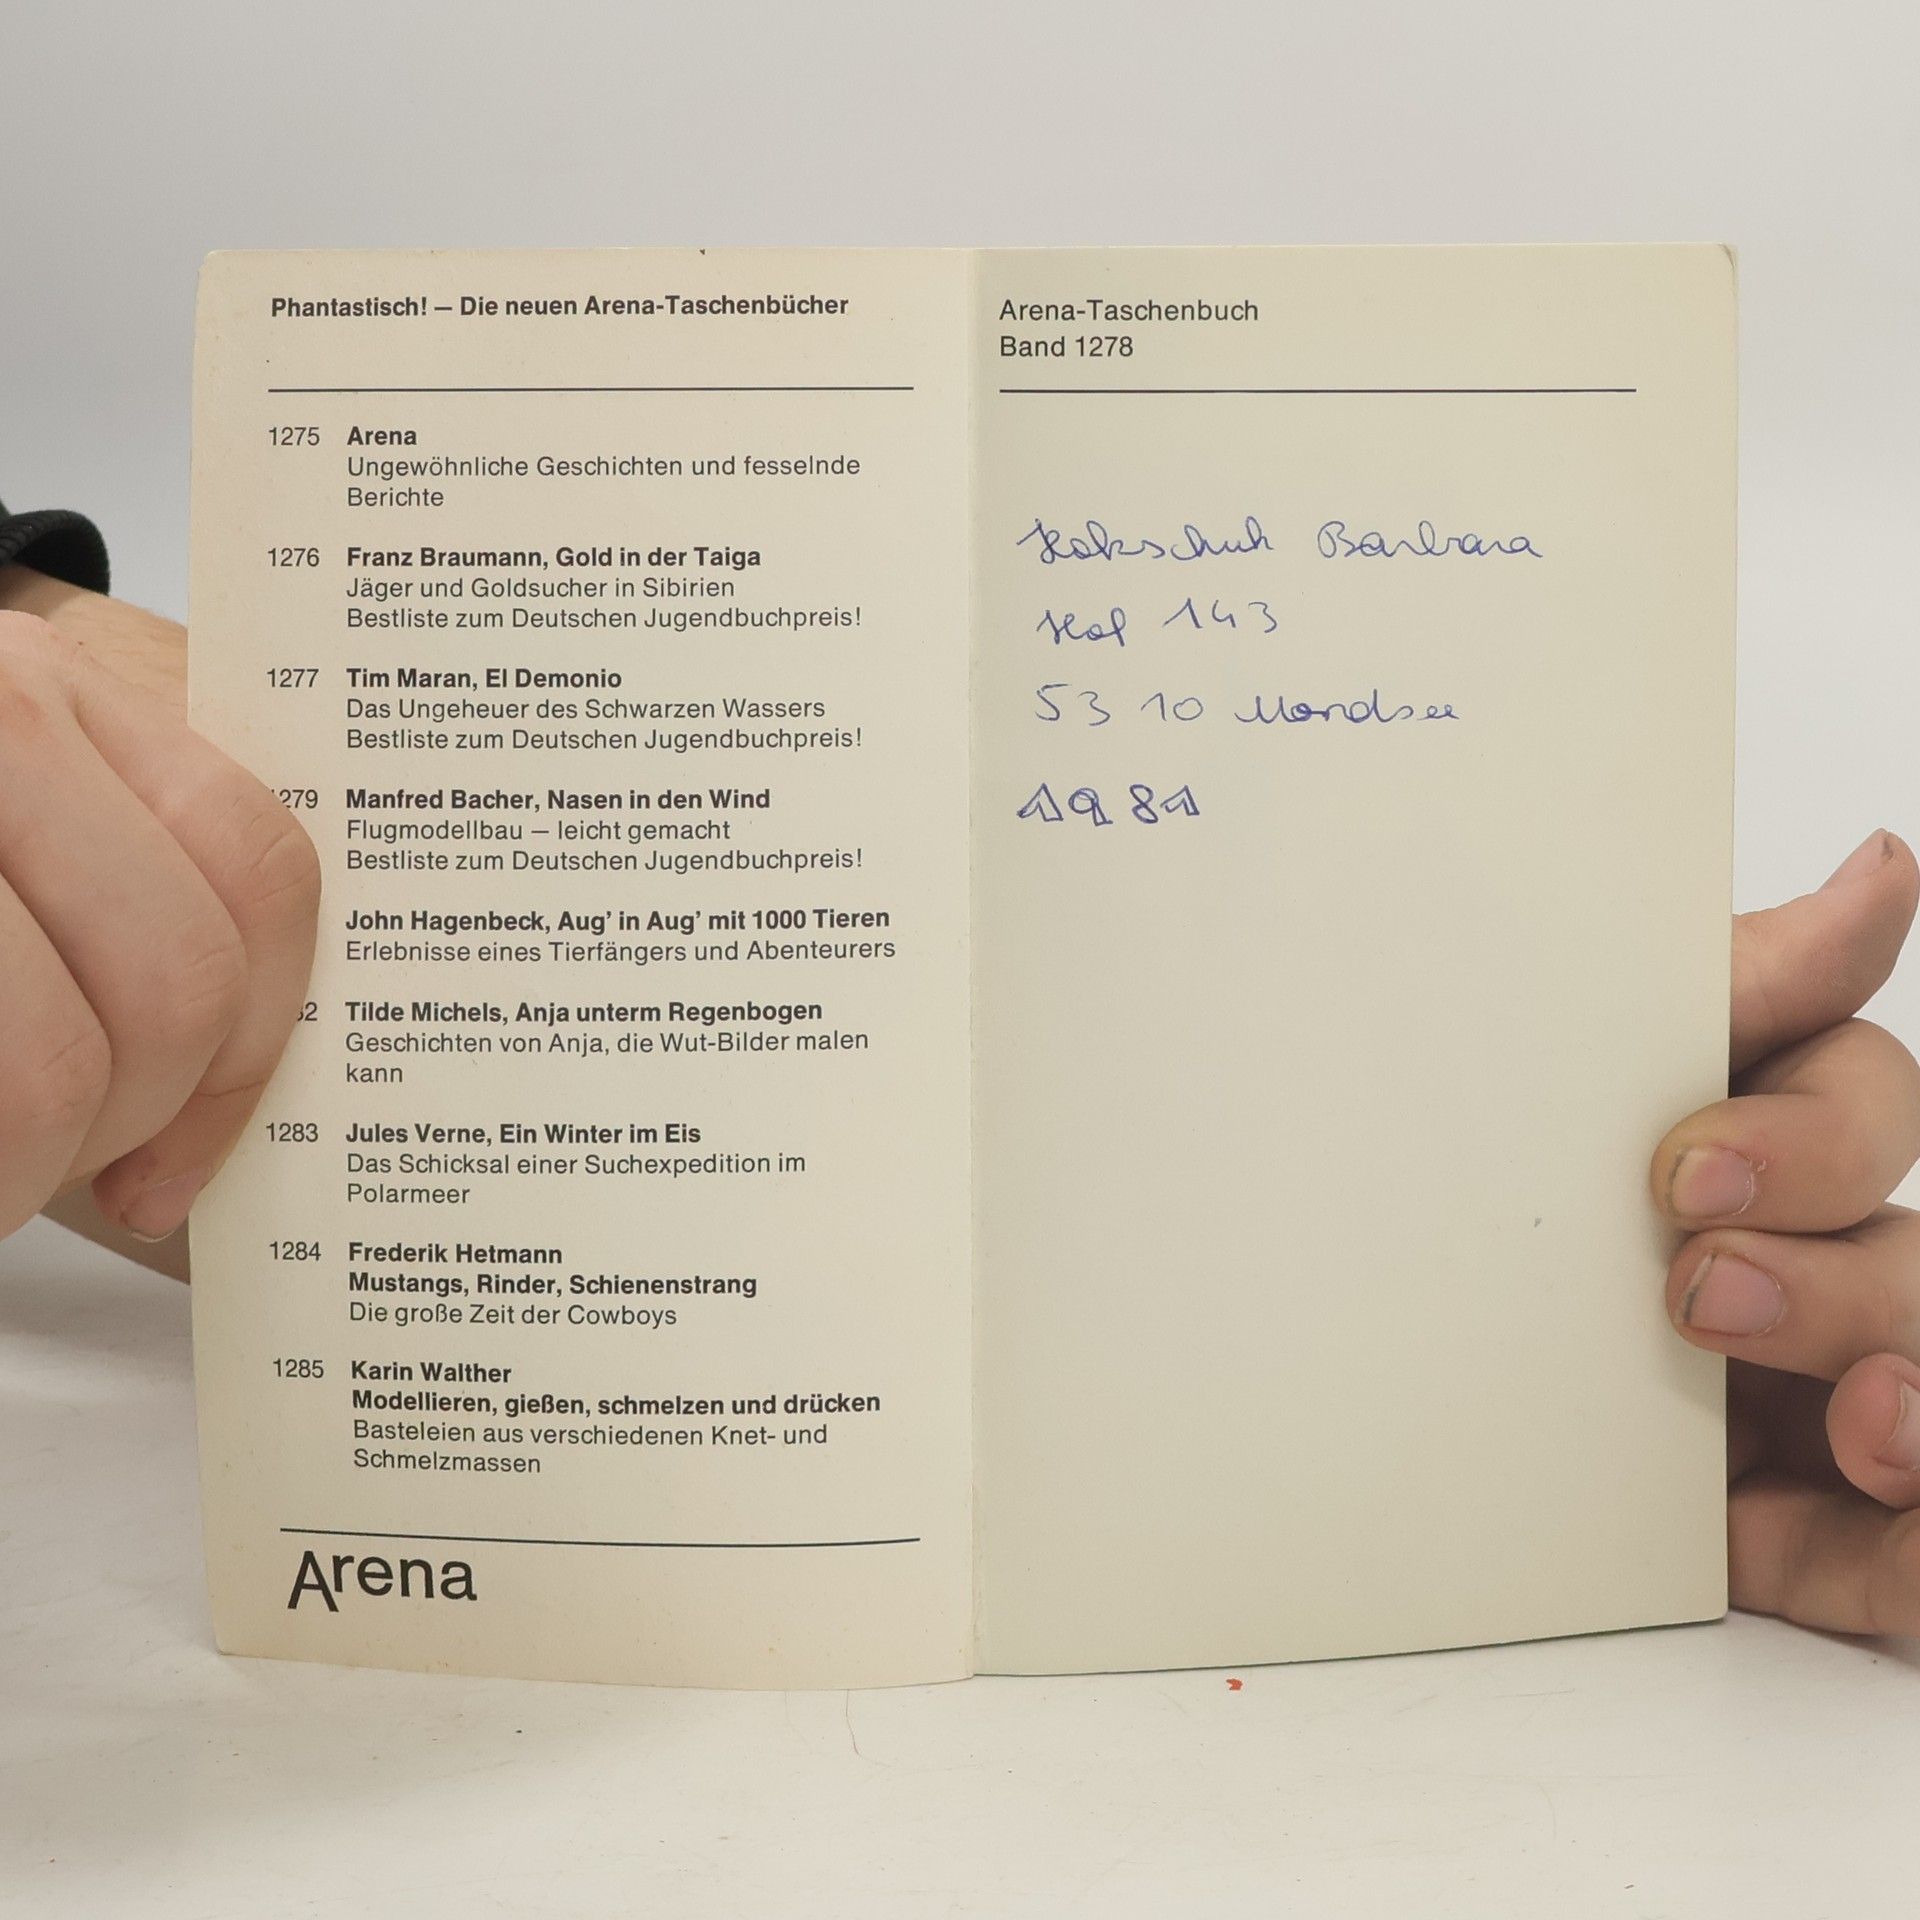 Phantastisch! — Die neuen Arena-Taschenbücher
1275 Arena
Ungewöhnliche Geschichten und fesselnde
Berichte
1276 Franz Braumann, Gold in der Taiga
Jäger und Goldsucher in Sibirien
Bestliste zum Deutschen Jugendbuchpreis!
1277 Tim Maran, El Demonio
Das Ungeheuer des Schwarzen Wassers
Bestliste zum Deutschen Jugendbuchpreis!
279 Manfred Bacher, Nasen in den Wind
Flugmodellbau — leicht gemacht
Bestliste zum Deutschen Jugendbuchpreis!
John Hagenbeck, Aug' in Aug' mit 1000 Tieren
Erlebnisse eines Tierfängers und Abenteurers
2 Tilde Michels, Anja unterm Regenbogen
Geschichten von Anja, die Wut-Bilder malen
kann
1283 Jules Verne, Ein Winter im Eis
Das Schicksal einer Suchexpedition im
Polarmeer
1284 Frederik Hetmann
Mustangs, Rinder, Schienenstrang
Die große Zeit der Cowboys
1285 Karin Walther
Modellieren, gießen, schmelzen und drücken
Basteleien aus verschiedenen Knet- und
Schmelzmassen
Arena
Arena-Taschenbuch
Band 1278
Barbara
Hof 143
5310 Mondsee
1981